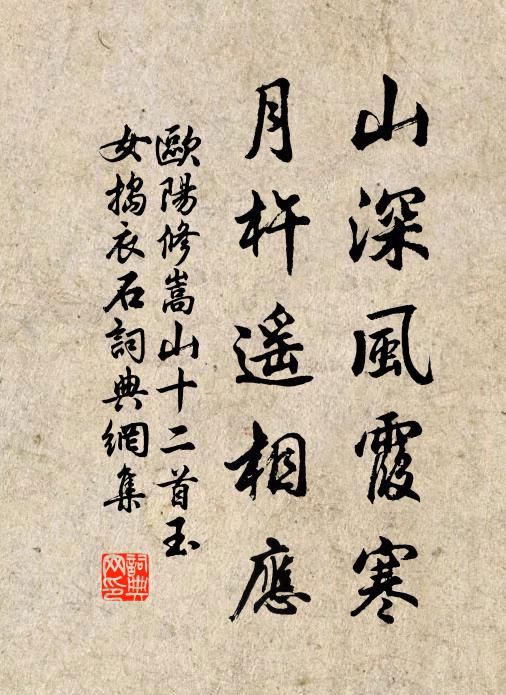 山深風霞寒
月杵遥相應
歐陽修嵩山十二首玉
女搗衣石詞典網集
詞典
网印